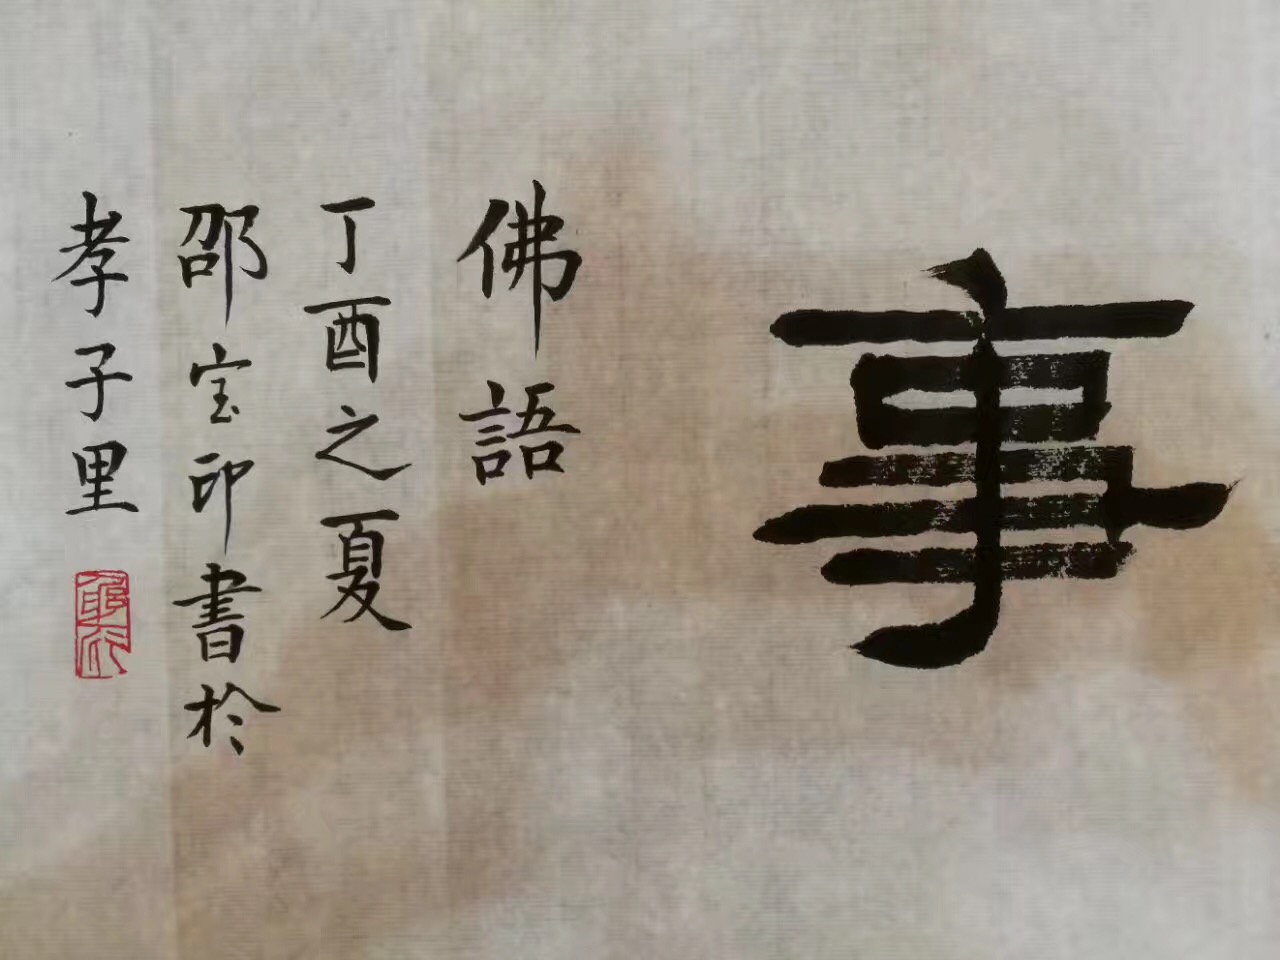 事
佛語
丁酉之夏
邵宝印書於
孝子里